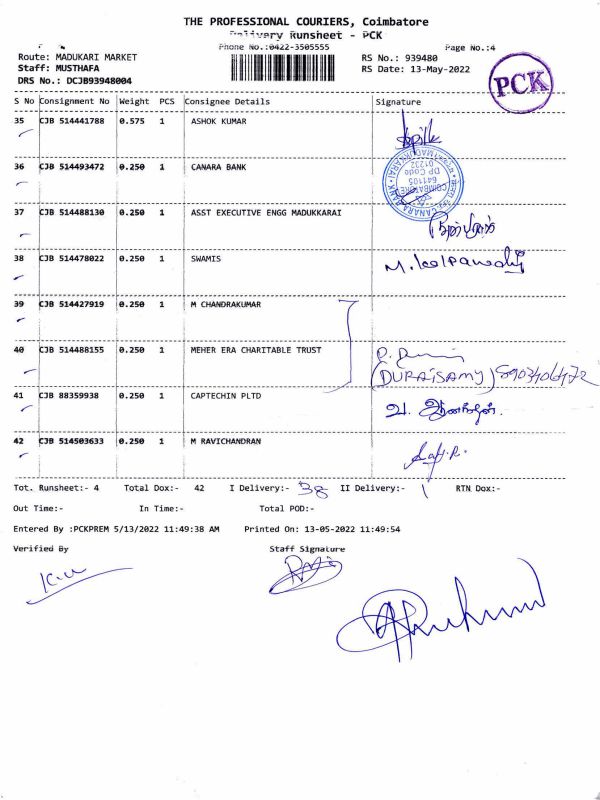 THE PROFESSIONAL COURIERS, Coimbatore
Delivery Runsheet - PCK
Phone No.:0422-3505555
Page No.:4
Route: MADUKARI MARKET
RS No.: 939480
Staff: MUSTHAFA
RS Date: 13-May-2022
DRS No.: DCJB93948004
PCK
S No Consignment No Weight PCS Consignee Details Signature
35 CJB 514441788 0.575 1 ASHOK KUMAR
36 CJB 514493472 0.250 1 CANARA BANK
COIMBATORE
641105
DP Code
01232
37 CJB 514488130 0.250 1 ASST EXECUTIVE ENGG MADUKKARAI
38 CJB 514478022 0.250 1 SWAMIS
39 CJB 514427919 0.250 1 M CHANDRAKUMAR
40 CJB 514488155 0.250 1 MEHER ERA CHARITABLE TRUST
(DURAISAMY)
41 CJB 88359938 0.250 1 CAPTECHIN PLTD
42 CJB 514503633 0.250 1 M RAVICHANDRAN
Tot. Runsheet:- 4 Total Dox:- 42 I Delivery:- 38 II Delivery:- 1 RTN Dox:-
Out Time:- In Time:- Total POD:-
Entered By :PCKPREM 5/13/2022 11:49:38 AM Printed On: 13-05-2022 11:49:54
Verified By Staff Signature